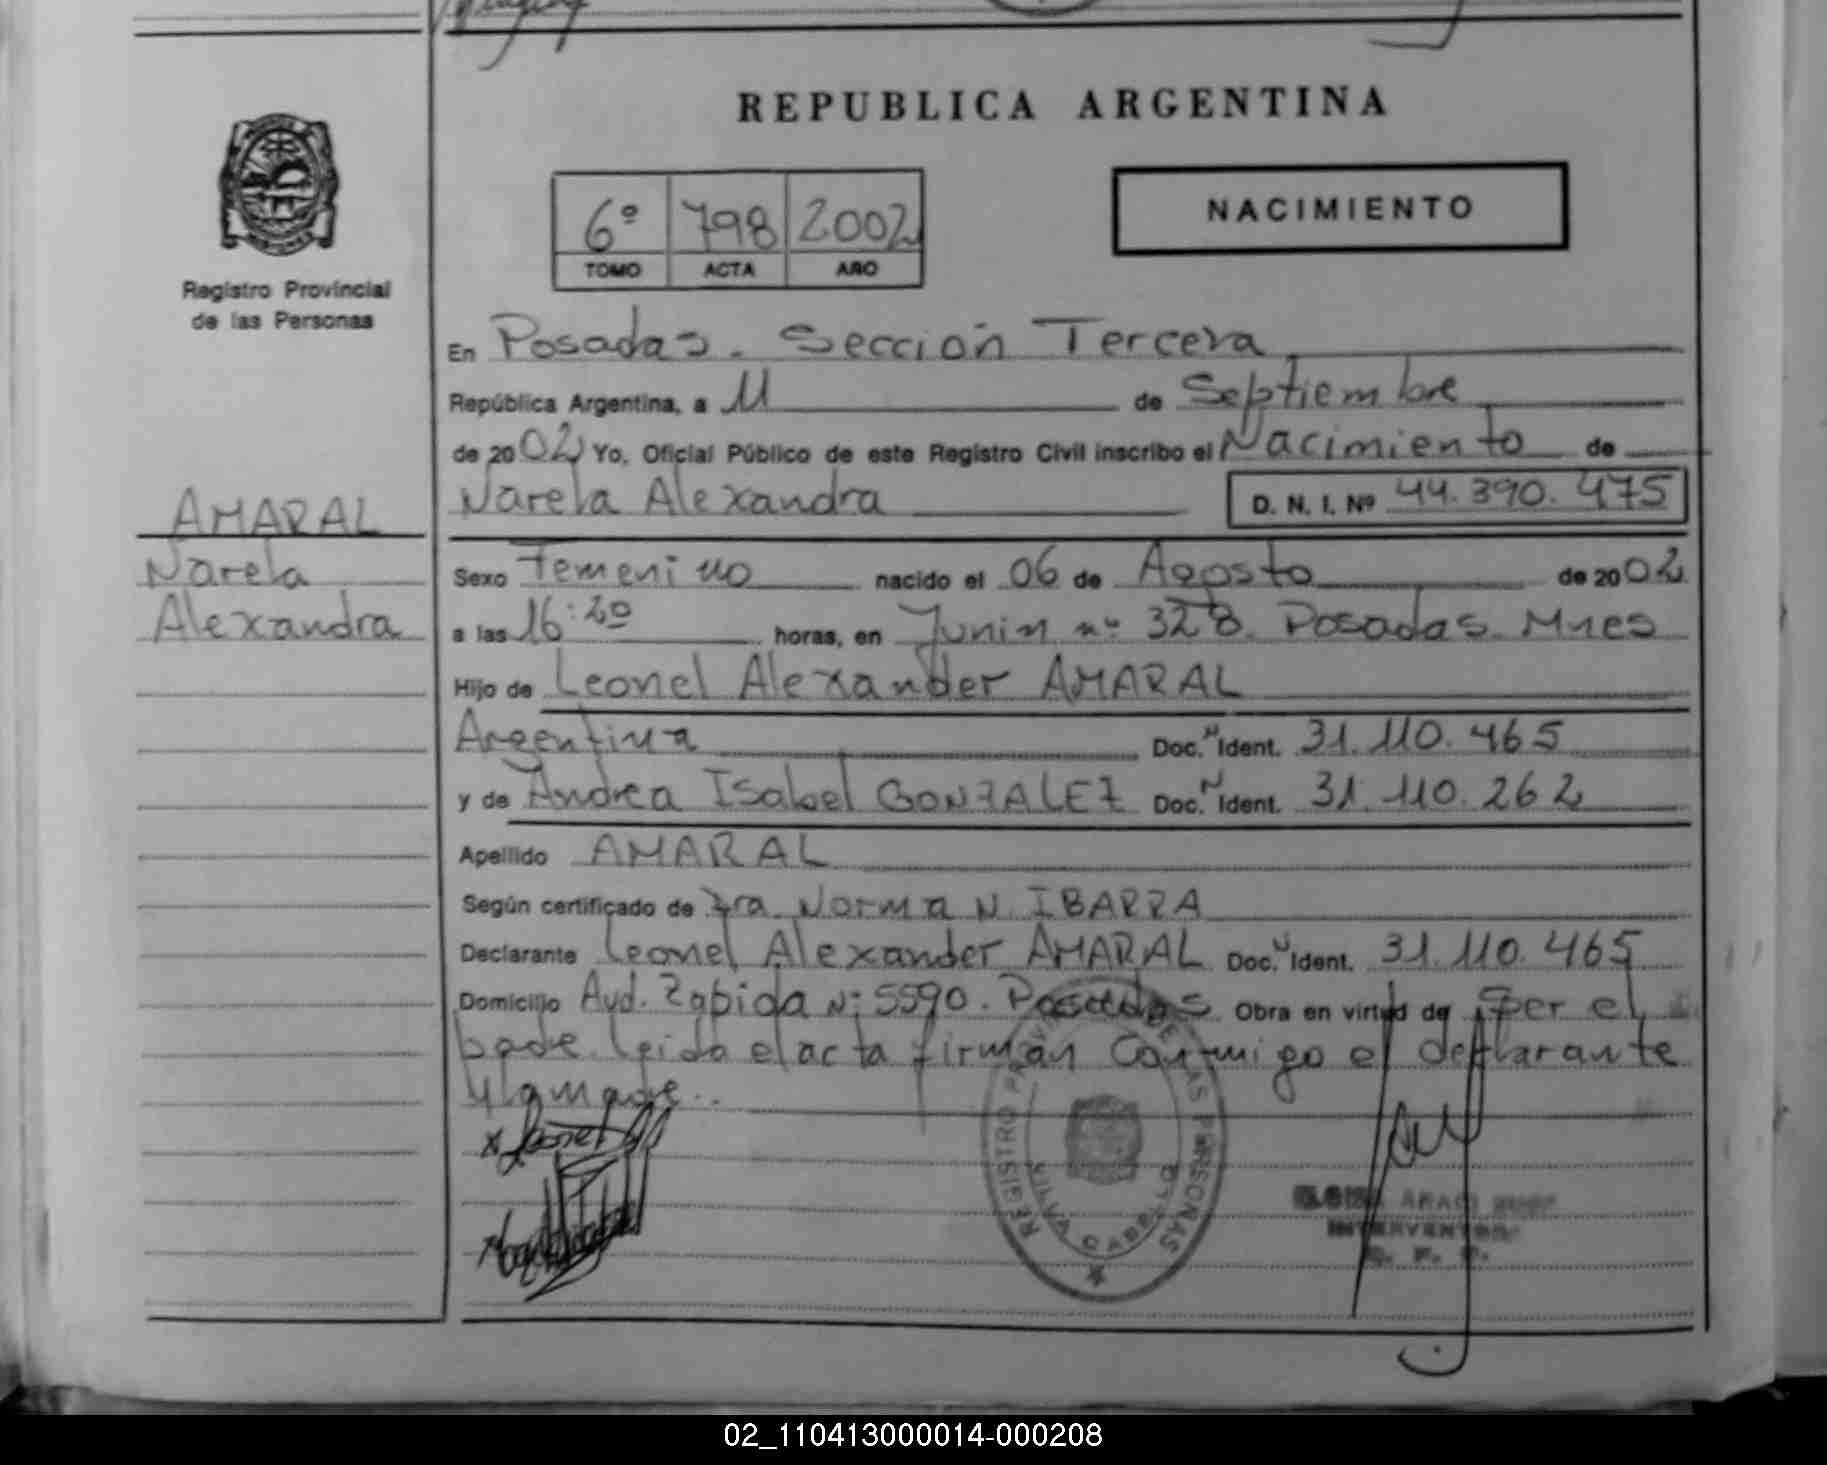 REPUBLICA ARGENTINA
6º 798 2002
TOMO ACTA AÑO
NACIMIENTO
Registro Provincial
de las Personas
En Posadas. Sección Tercera
República Argentina, a 11 de Septiembre
de 2002 Yo, Oficial Público de este Registro Civil inscribo el Nacimiento de
Narela Alexandra D. N. I. Nº 44.390.475
AMARAL
Narela
Alexandra
Sexo Femenino nacido el 06 de Agosto de 2002
a las 16:20 horas, en Junin nº 328. Posadas. Mnes
Hijo de Leonel Alexander AMARAL
Argentina Doc. N Ident. 31.110.465
y de Andrea Isabel GONZALEZ Doc. N Ident. 31.110.262
Apellido AMARAL
Según certificado de Dra. Norma N. IBARRA
Declarante Leonel Alexander AMARAL Doc. N Ident. 31.110.465
Domicilio Avd. Zapiola Nº 5590. Posadas Obra en virtud de Ser el
padre. leida el acta firman conmigo el declarante
y la madre..
REGISTRO DE LAS PERSONAS
VILLA CABELLO
INTERVENTORA
02_110413000014-000208